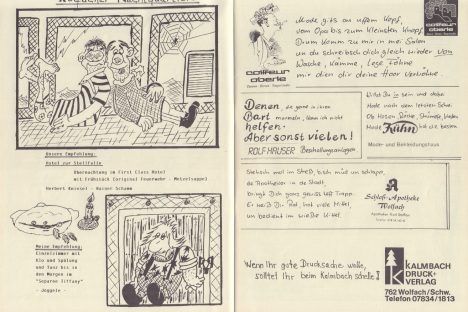 Unsere Empfehlung:
Hotel zur Stellfalle
Übernachtung im First Class Hotel
mit Frühstück (original Feuerwehr - Metzelsuppe)
Herbert Kernkel - Rainer Schamm
Meine Empfehlung:
Einzelzimmer mit
Klo und Spülung
und Tanz bis in
den Morgen im
"Separee Tiffany"
- Joggele -
Mode gits an uffem Kopf,
vom Opa bis zum kleinsten Knopf
Drum komm zu mir in mei Salon
an du schreibsch dich gleich wieder von
Wäsche, Kämme, Lege, Föhne
mir dien dir deine Hoor verwöhne.
coiffeur
oberle
coiffeur
oberle
Denen, die gern in ihren
Bart murmeln, kann ich nicht
helfen.
Aber sonst vielen!
ROLF HAUSER Beschallungsanlagen
Willst Du in sein und dabei
Mode nach dem letzten Schrei.
Ob Hosen, Röcke,
Mode Kühn hat die besten.
Mode- und Bekleidungshaus
Stehsch mol im Streß, bisch müd un schlapp,
de Apotheker in de Stadt
Bringt Dich ganz gwiss uff Trapp.
Er weiß Dir Rat, hat viele Mittel,
un bedient im weißer Kittel.
Schloß-Apotheke
Wolfach
Wenn Ihr gute Drucksache welle,
solltet Ihr beim Kalmbach schelle!
KALMBACH
DRUCK +
VERLAG
762 Wolfach/Schw.
Telefon 07834/1813